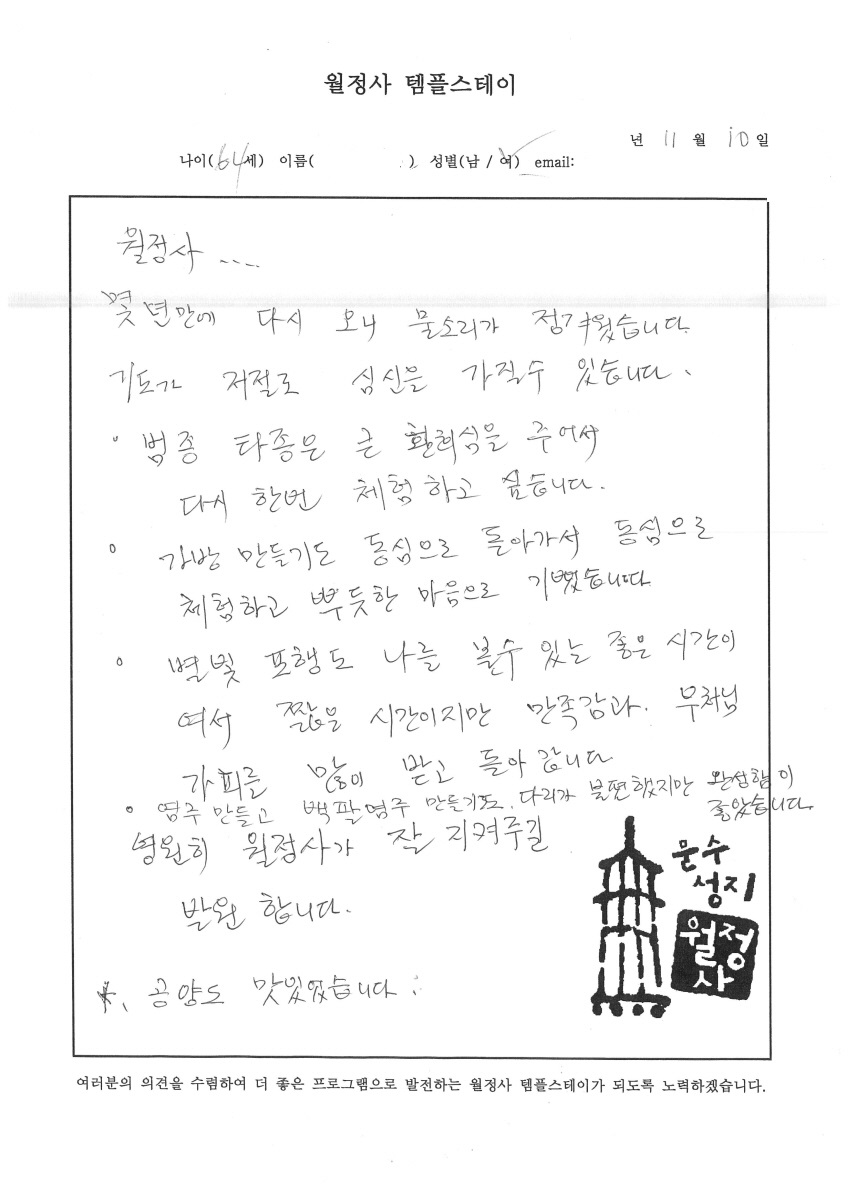 월정사 템플스테이
년 11 월 10 일
나이(64세) 이름( ) 성별(남 / 여) email:
월정사 ....
몇 년만에 다시 오니 물소리가 정겨웠습니다.
기도가 저절로 심신을 가질수 있습니다.
범종 타종은 큰 환희심을 주어서
다시 한번 체험하고 싶습니다.
가방 만들기도 동심으로 돌아가서 동심으로
체험하고 뿌듯한 마음으로 기뻤습니다.
별빛 포행도 나를 볼수 있는 좋은 시간이
여서 짧은 시간이지만 만족감과. 부처님
가피를 많이 받고 돌아 갑니다
염주 만들고 백팔염주 만들기도. 다리가 불편했지만 완성함이
좋았습니다.
영원히 월정사가 잘 지켜주길
발원 합니다.
*. 공양도 맛있었습니다.
문수
성지
월정
사
여러분의 의견을 수렴하여 더 좋은 프로그램으로 발전하는 월정사 템플스테이가 되도록 노력하겠습니다.